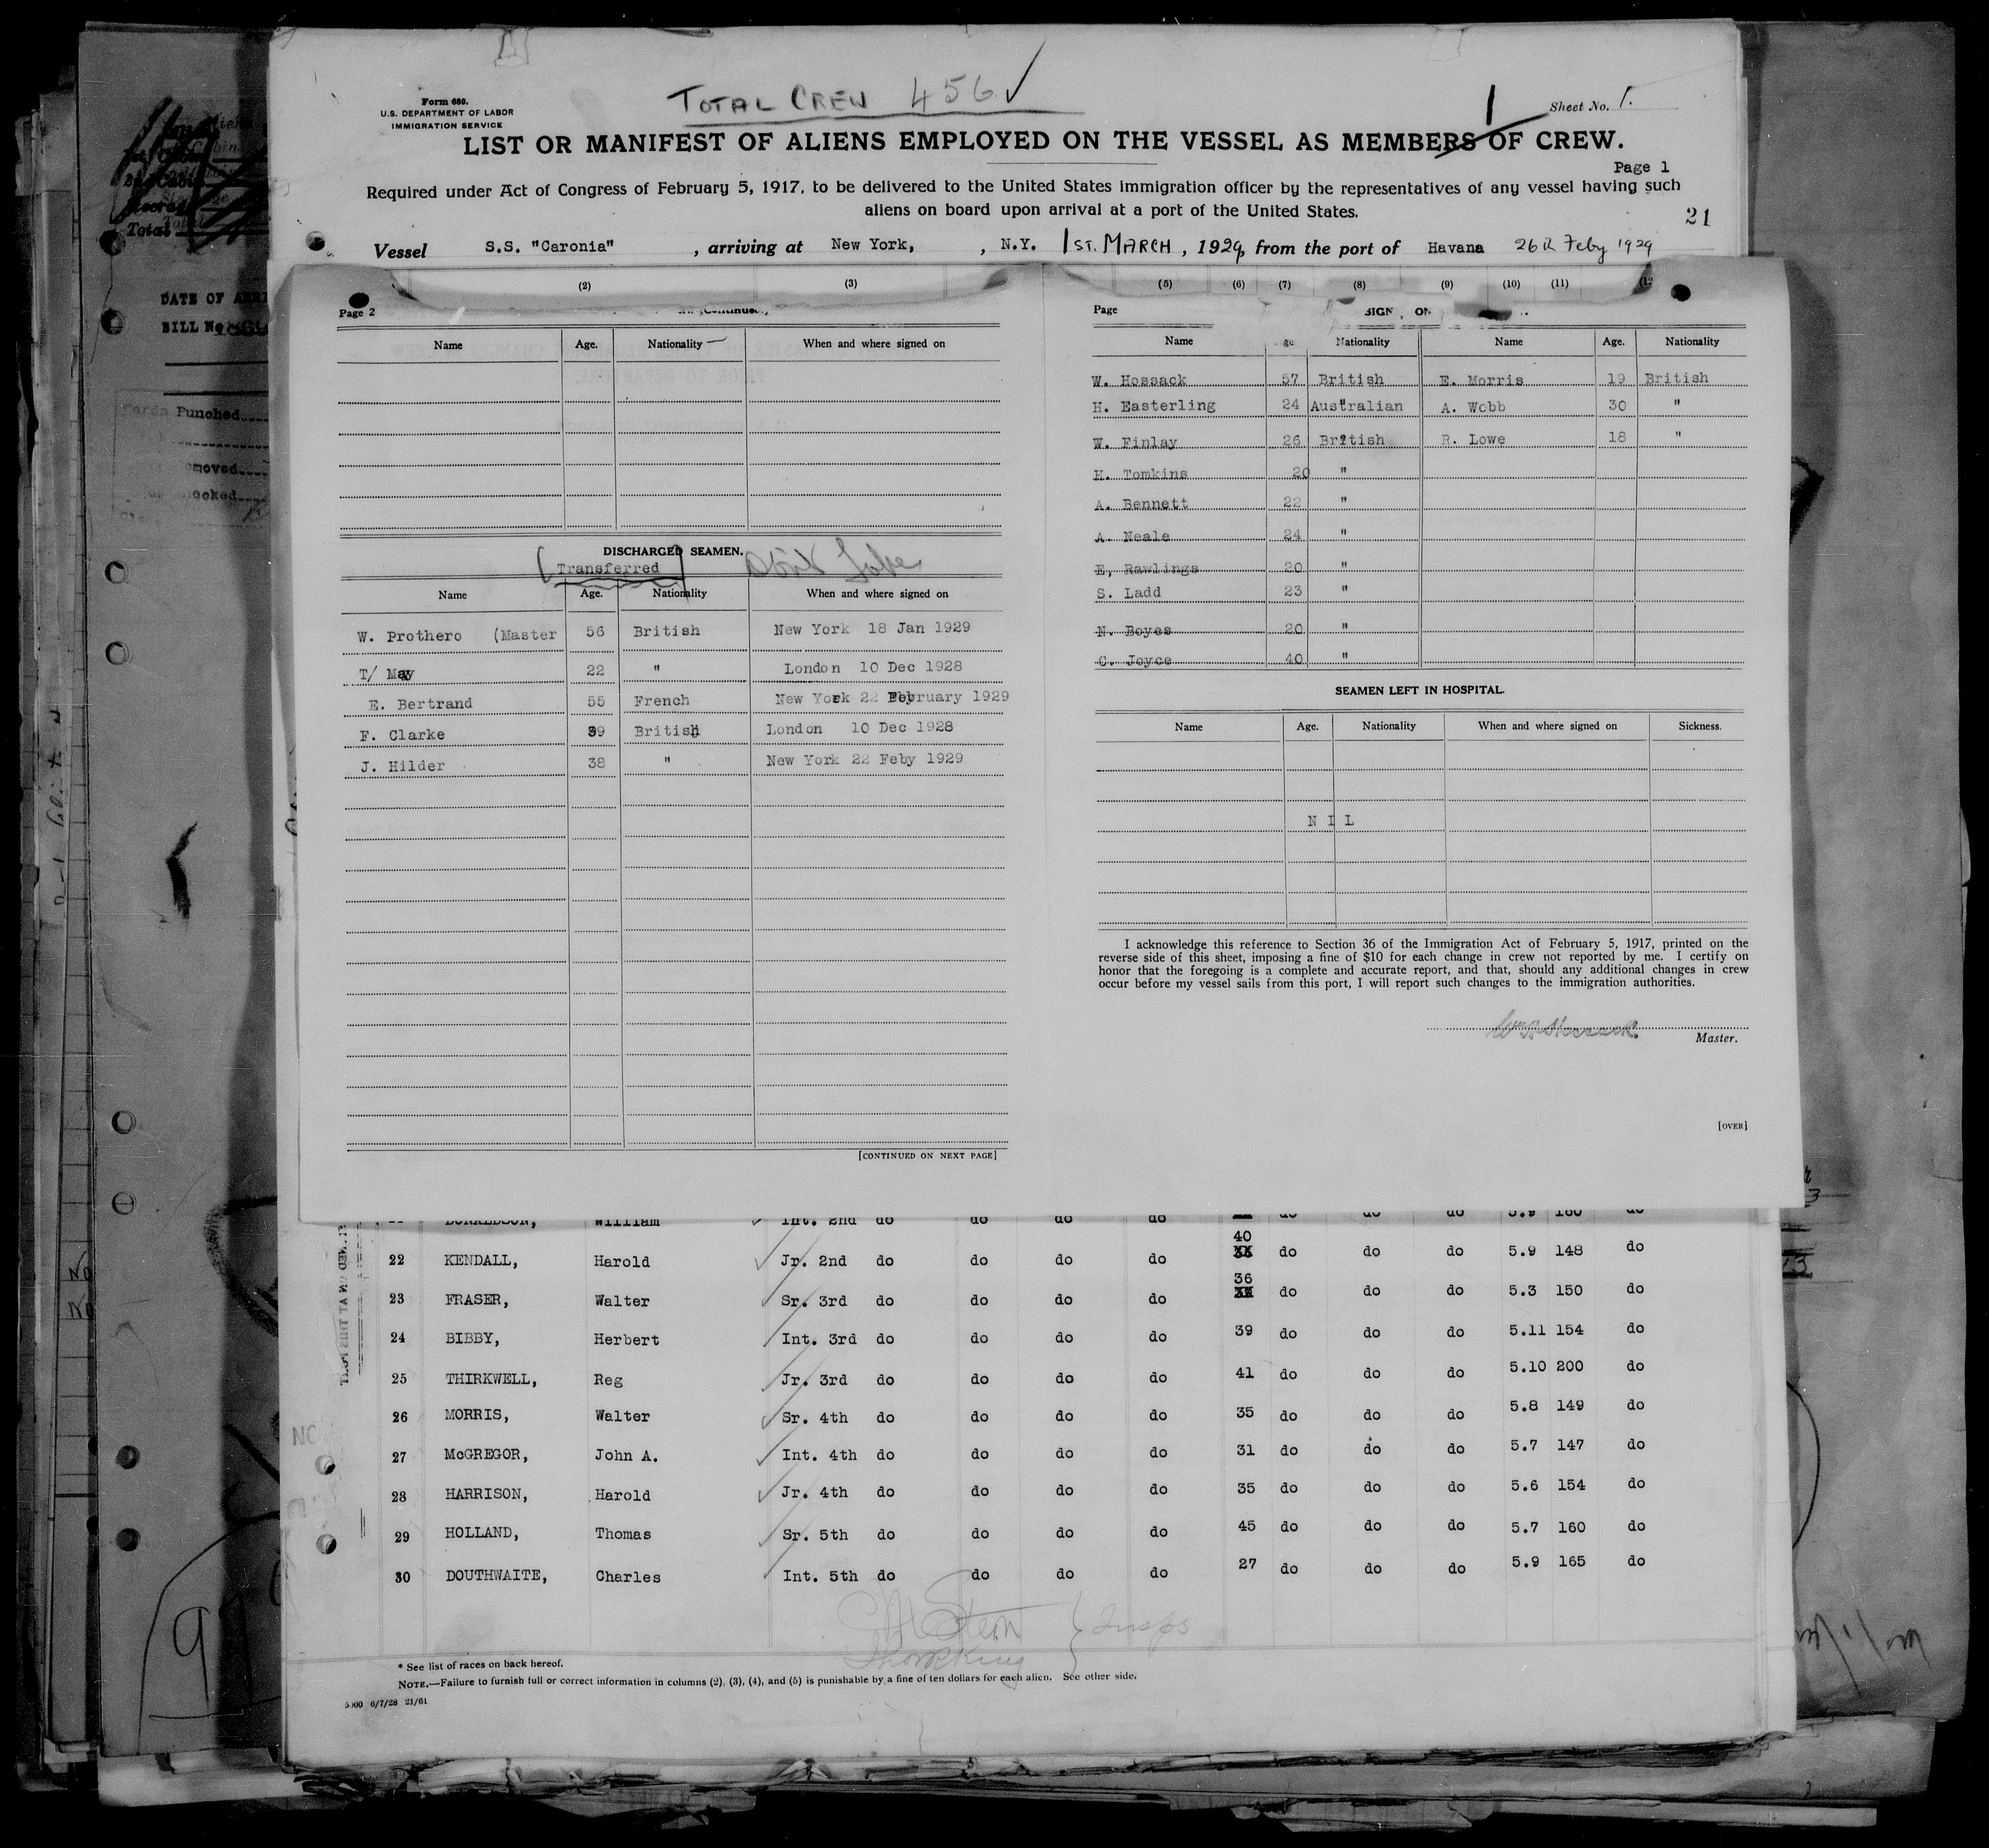 TOTAL CREW 456 ✓
Form 680.
U.S. DEPARTMENT OF LABOR
IMMIGRATION SERVICE
1
Sheet No. 1.
LIST OR MANIFEST OF ALIENS EMPLOYED ON THE VESSEL AS MEMBERS OF CREW.
Page 1
Required under Act of Congress of February 5, 1917, to be delivered to the United States immigration officer by the representatives of any vessel having such
aliens on board upon arrival at a port of the United States.
21
Vessel S.S. "Caronia" , arriving at New York, , N.Y. 1ST. MARCH , 1929, from the port of Havana 26th Feby 1929
(2) (3) (5) (6) (7) (8) (9) (10) (11) (12
Total
DATE OF
BILL No
Cards Punched
Page 2
Name Age. Nationality When and where signed on
DISCHARGED SEAMEN.
(Transferred)
Name Age. Nationality When and where signed on
W. Prothero (Master 56 British New York 18 Jan 1929
T/ May 22 " London 10 Dec 1928
E. Bertrand 55 French New York 22 February 1929
F. Clarke 39 British London 10 Dec 1928
J. Hilder 38 " New York 22 Feby 1929
[CONTINUED ON NEXT PAGE]
Page SIGN ON
Name ge Nationality Name Age. Nationality
W. Hossack 57 British E. Morris 19 British
H. Easterling 24 Australian A. Webb 30 "
W. Finlay 26 British R. Lowe 18 "
H. Tomkins 20 "
A. Bennett 22 "
A. Neale 24 "
E, Rawlings 20 "
S. Ladd 23 "
N. Boyes 20 "
C. Joyce 40 "
SEAMEN LEFT IN HOSPITAL.
Name Age. Nationality When and where signed on Sickness.
N I L
I acknowledge this reference to Section 36 of the Immigration Act of February 5, 1917, printed on the
reverse side of this sheet, imposing a fine of $10 for each change in crew not reported by me. I certify on
honor that the foregoing is a complete and accurate report, and that, should any additional changes in crew
occur before my vessel sails from this port, I will report such changes to the immigration authorities.
Master.
[OVER]
DONALDSON, William Int. 2nd do do do do do do do 5.9 160 do
22 KENDALL, Harold Jr. 2nd do do do do 40 do do do 5.9 148 do
23 FRASER, Walter Sr. 3rd do do do do 36 do do do 5.3 150 do
24 BIBBY, Herbert Int. 3rd do do do do 39 do do do 5.11 154 do
25 THIRKWELL, Reg Jr. 3rd do do do do 41 do do do 5.10 200 do
26 MORRIS, Walter Sr. 4th do do do do 35 do do do 5.8 149 do
27 McGREGOR, John A. Int. 4th do do do do 31 do do do 5.7 147 do
28 HARRISON, Harold Jr. 4th do do do do 35 do do do 5.6 154 do
29 HOLLAND, Thomas Sr. 5th do do do do 45 do do do 5.7 160 do
30 DOUTHWAITE, Charles Int. 5th do do do do 27 do do do 5.9 165 do
* See list of races on back hereof.
NOTE.—Failure to furnish full or correct information in columns (2), (3), (4), and (5) is punishable by a fine of ten dollars for each alien. See other side.
6/7/28 21/61